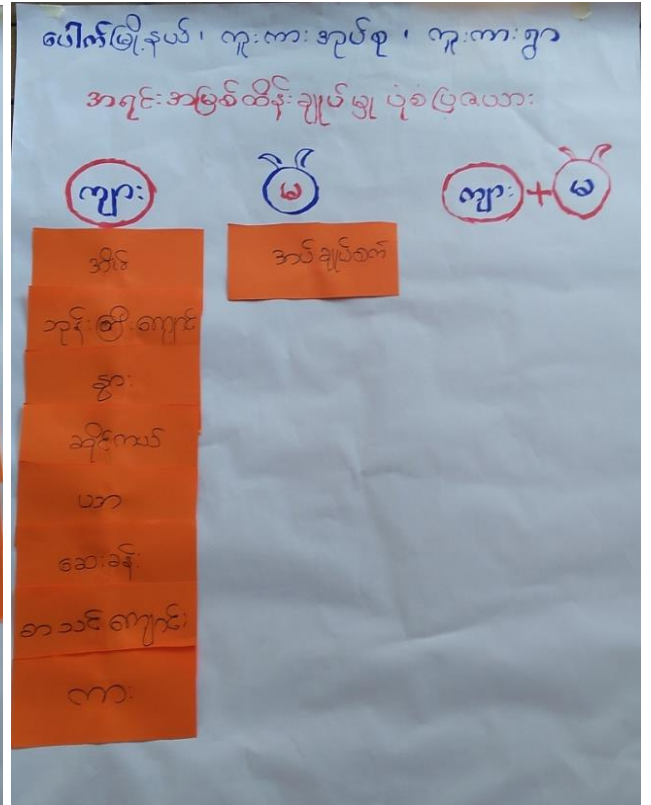 ပေါက်မြို့နယ်၊ ကူးကားအုပ်စု၊ ကူးကားရွာ
အရင်းအမြစ်ထိန်းချုပ်မှု ပုံစံပြဇယား
ကျား မ ကျား + မ
အိမ် အပ်ချုပ်စက်
ဘုန်းကြီးကျောင်း
နွား
ဆိုင်ကယ်
ယာ
ဆေးခန်း
စာသင်ကျောင်း
ကား